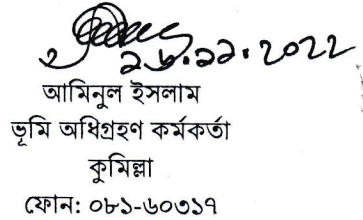 ২৮.১১.2022
আমিনুল ইসলাম
ভূমি অধিগ্রহণ কর্মকর্তা
কুমিল্লা
ফোন: ০৮১-৬০৩১৭